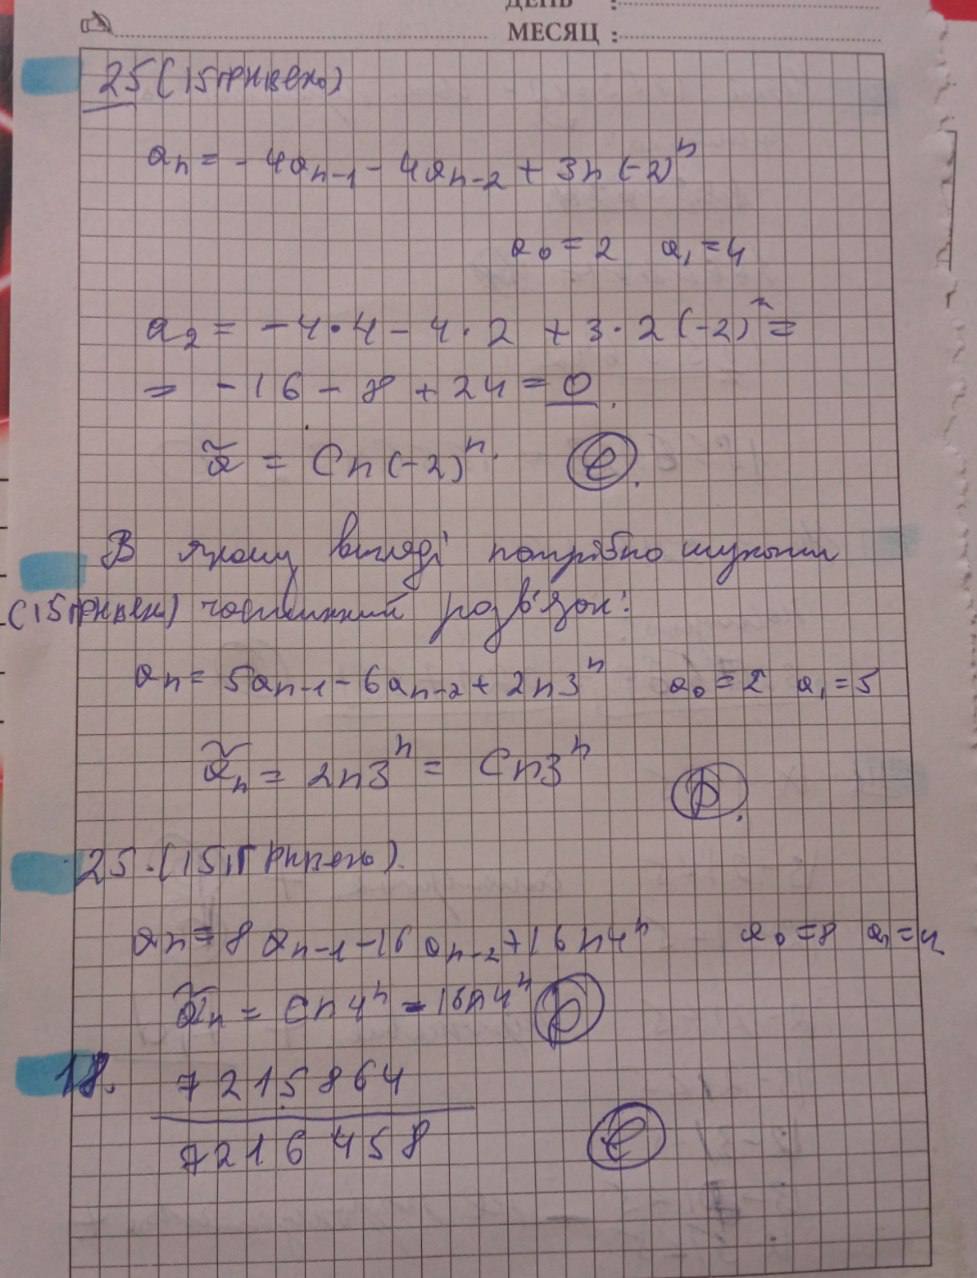 ДЕНЬ :
МЕСЯЦ :
25 (15 гривень)
aₙ = - 4aₙ₋₁ - 4aₙ₋₂ + 3n (-2)ⁿ
a₀ = 2 a₁ = 4
a₂ = -4·4 - 4·2 + 3·2 (-2)² =
= -16 - 8 + 24 = 0.
ã = Cn (-2)ⁿ. e.
В якому вигляді потрібно шукати
(15 гривень) частинний розв'язок:
aₙ = 5aₙ₋₁ - 6aₙ₋₂ + 2n3ⁿ a₀ = 2 a₁ = 5
ãₙ = 2n3ⁿ = Cn3ⁿ
25. (15 гривень).
aₙ = 8aₙ₋₁ - 16aₙ₋₂ + 16n4ⁿ a₀ = 8 a₁ = 4
ãₙ = Cn4ⁿ = 16n4ⁿ
18. 7215864
7216458 e